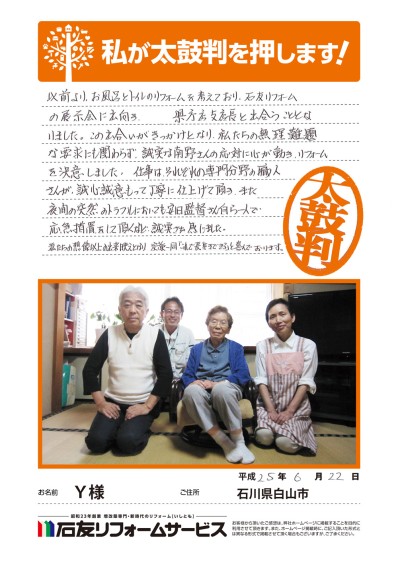 私が太鼓判を押します!
以前より、お風呂とトイレのリフォームを考えており、石友リフォーム
の展示会に出向き、 支店長と出会うこととな
りました。この出会いがきっかけとなり、私たちの無理難題
な要求にも関わらず、誠実な南野さんの応対に心が動き、リフォーム
を決意しました。仕事はそれぞれの専門分野の職人
さんが、誠心誠意もって丁寧に仕上げて頂き、また
夜間の突然のトラブルにおいても 監督さん自ら一人で
応急措置をして頂くなど誠実な 。
私たちの想像以上の出来映えとなり、家族一同「 」と喜んでおります。
太鼓判
平成 25年 6月 22日
お名前 Y様 ご住所 石川県白山市
昭和23年創業 増改築専門・新時代のリフォーム(いしとも)
石友リフォームサービス
お客様から頂いたご感想は、弊社ホームページに掲載することを目的に
利用させて頂きます。また、ホームページ掲載時に、ご記入頂いた形式と
は異なる形式で掲載させて頂く場合もございますが、ご了承ください。